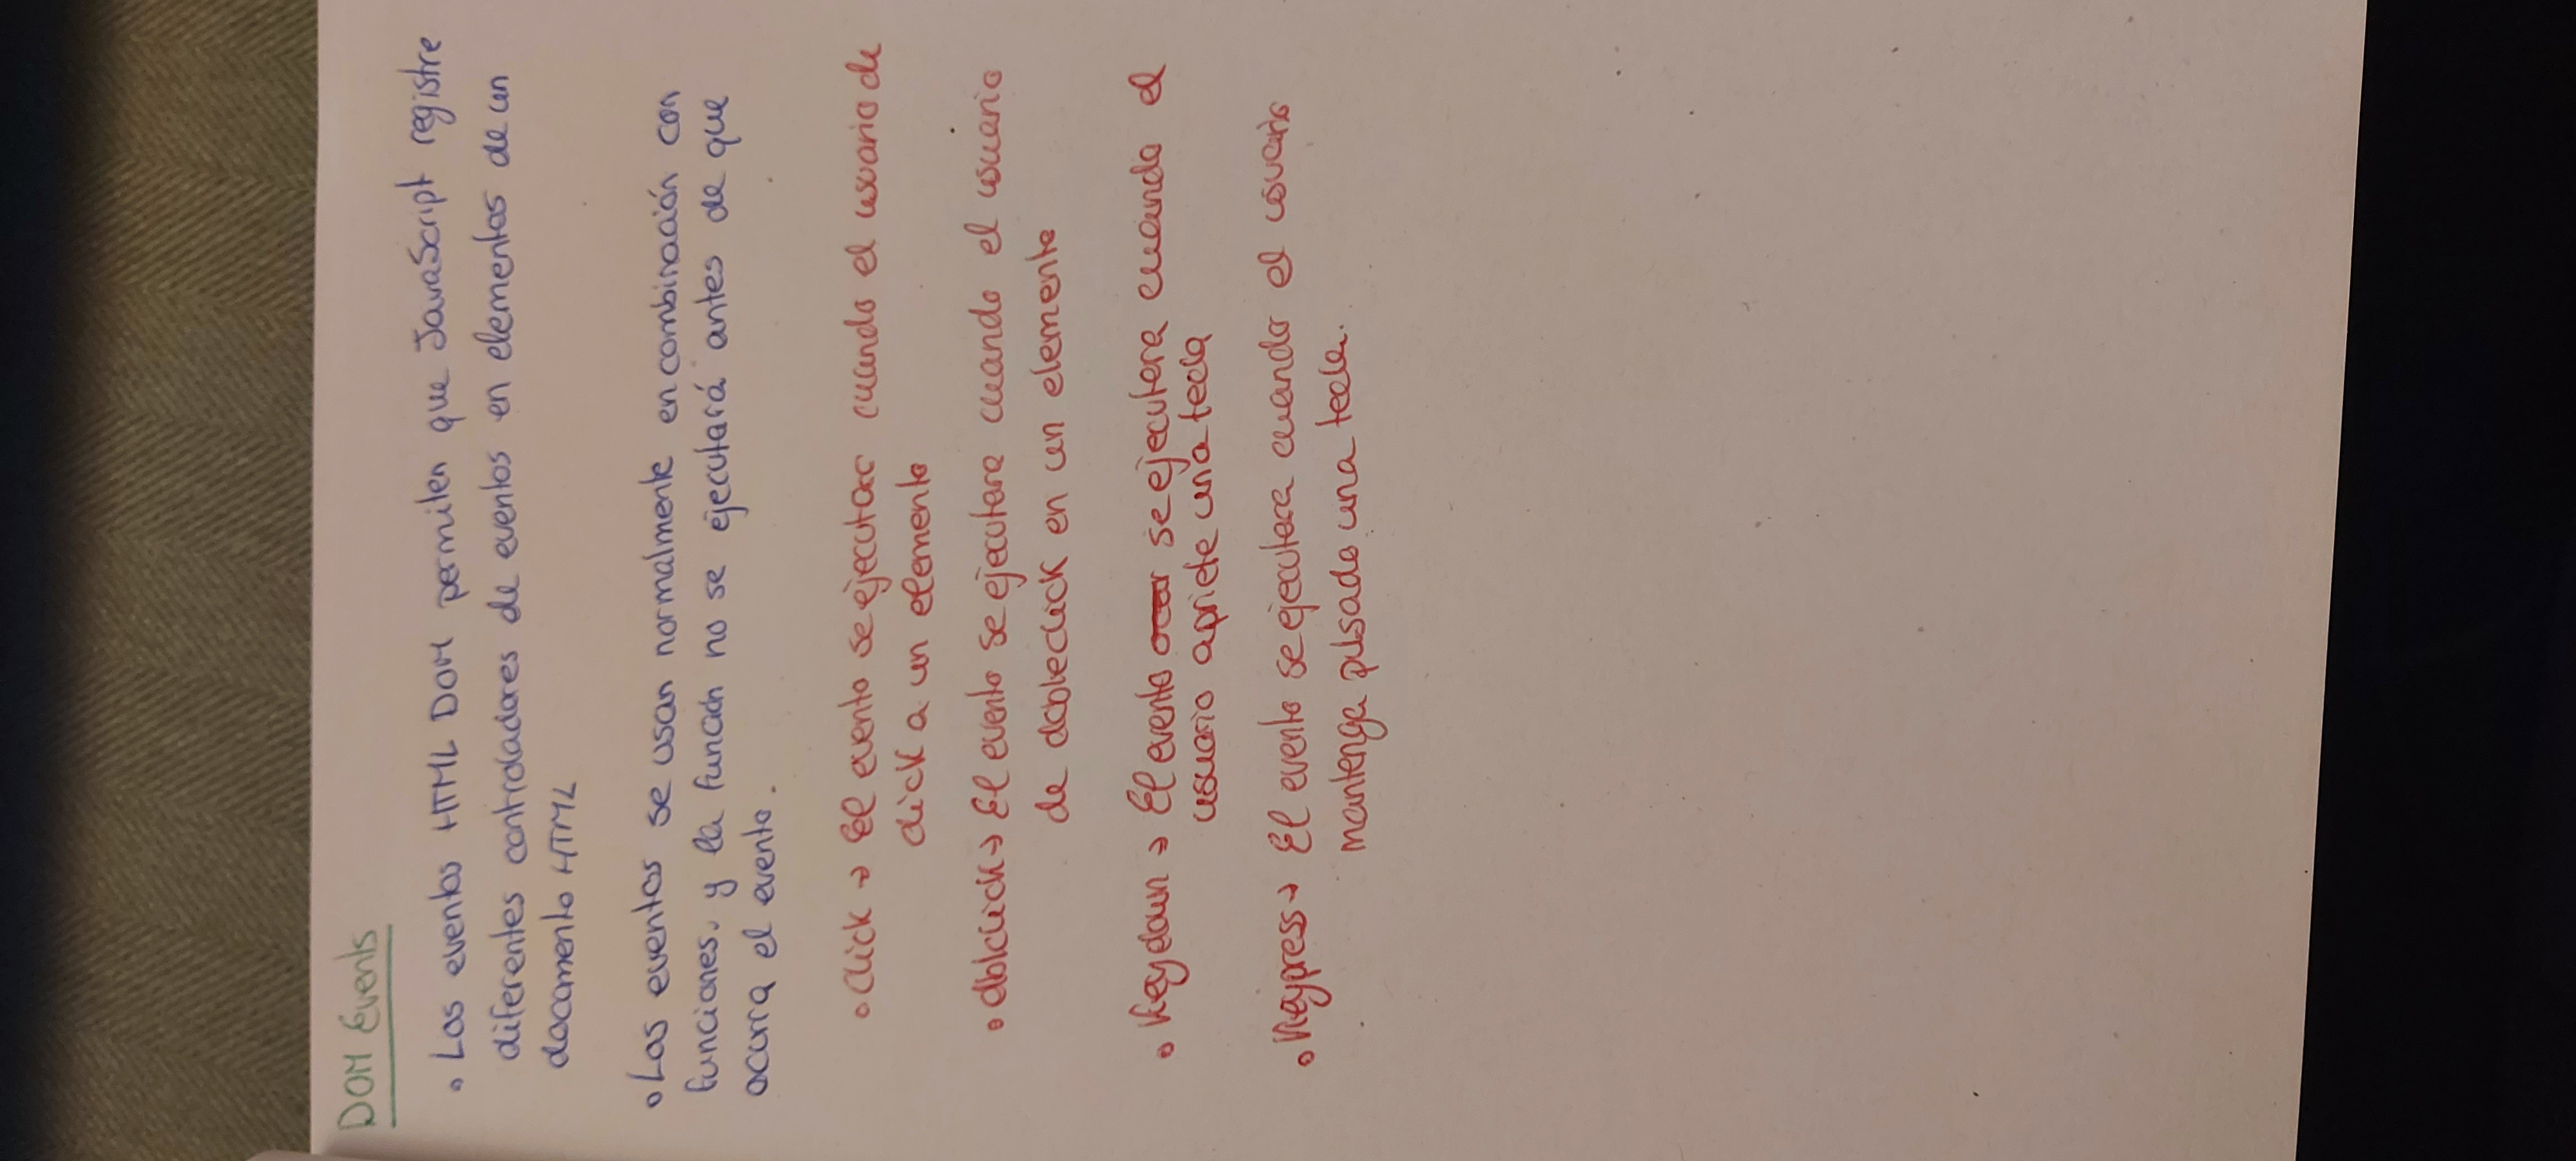 DOM Events
• Los eventos HTML DOM permiten que JavaScript registre
diferentes controladores de eventos en elementos de un
documento HTML
• Los eventos se usan normalmente en combinación con
funciones, y la función no se ejecutará antes de que
ocurra el evento.
• Click → El evento se ejecutara cuando el usuario de
click a un elemento
• dblclick → El evento se ejecutara cuando el usuario
de dobleclick en un elemento
• Keydown → El evento se ejecutara cuando el
usuario apriete una tecla
• Keypress → El evento se ejecutara cuando el usuario
mantenga pulsado una tecla.